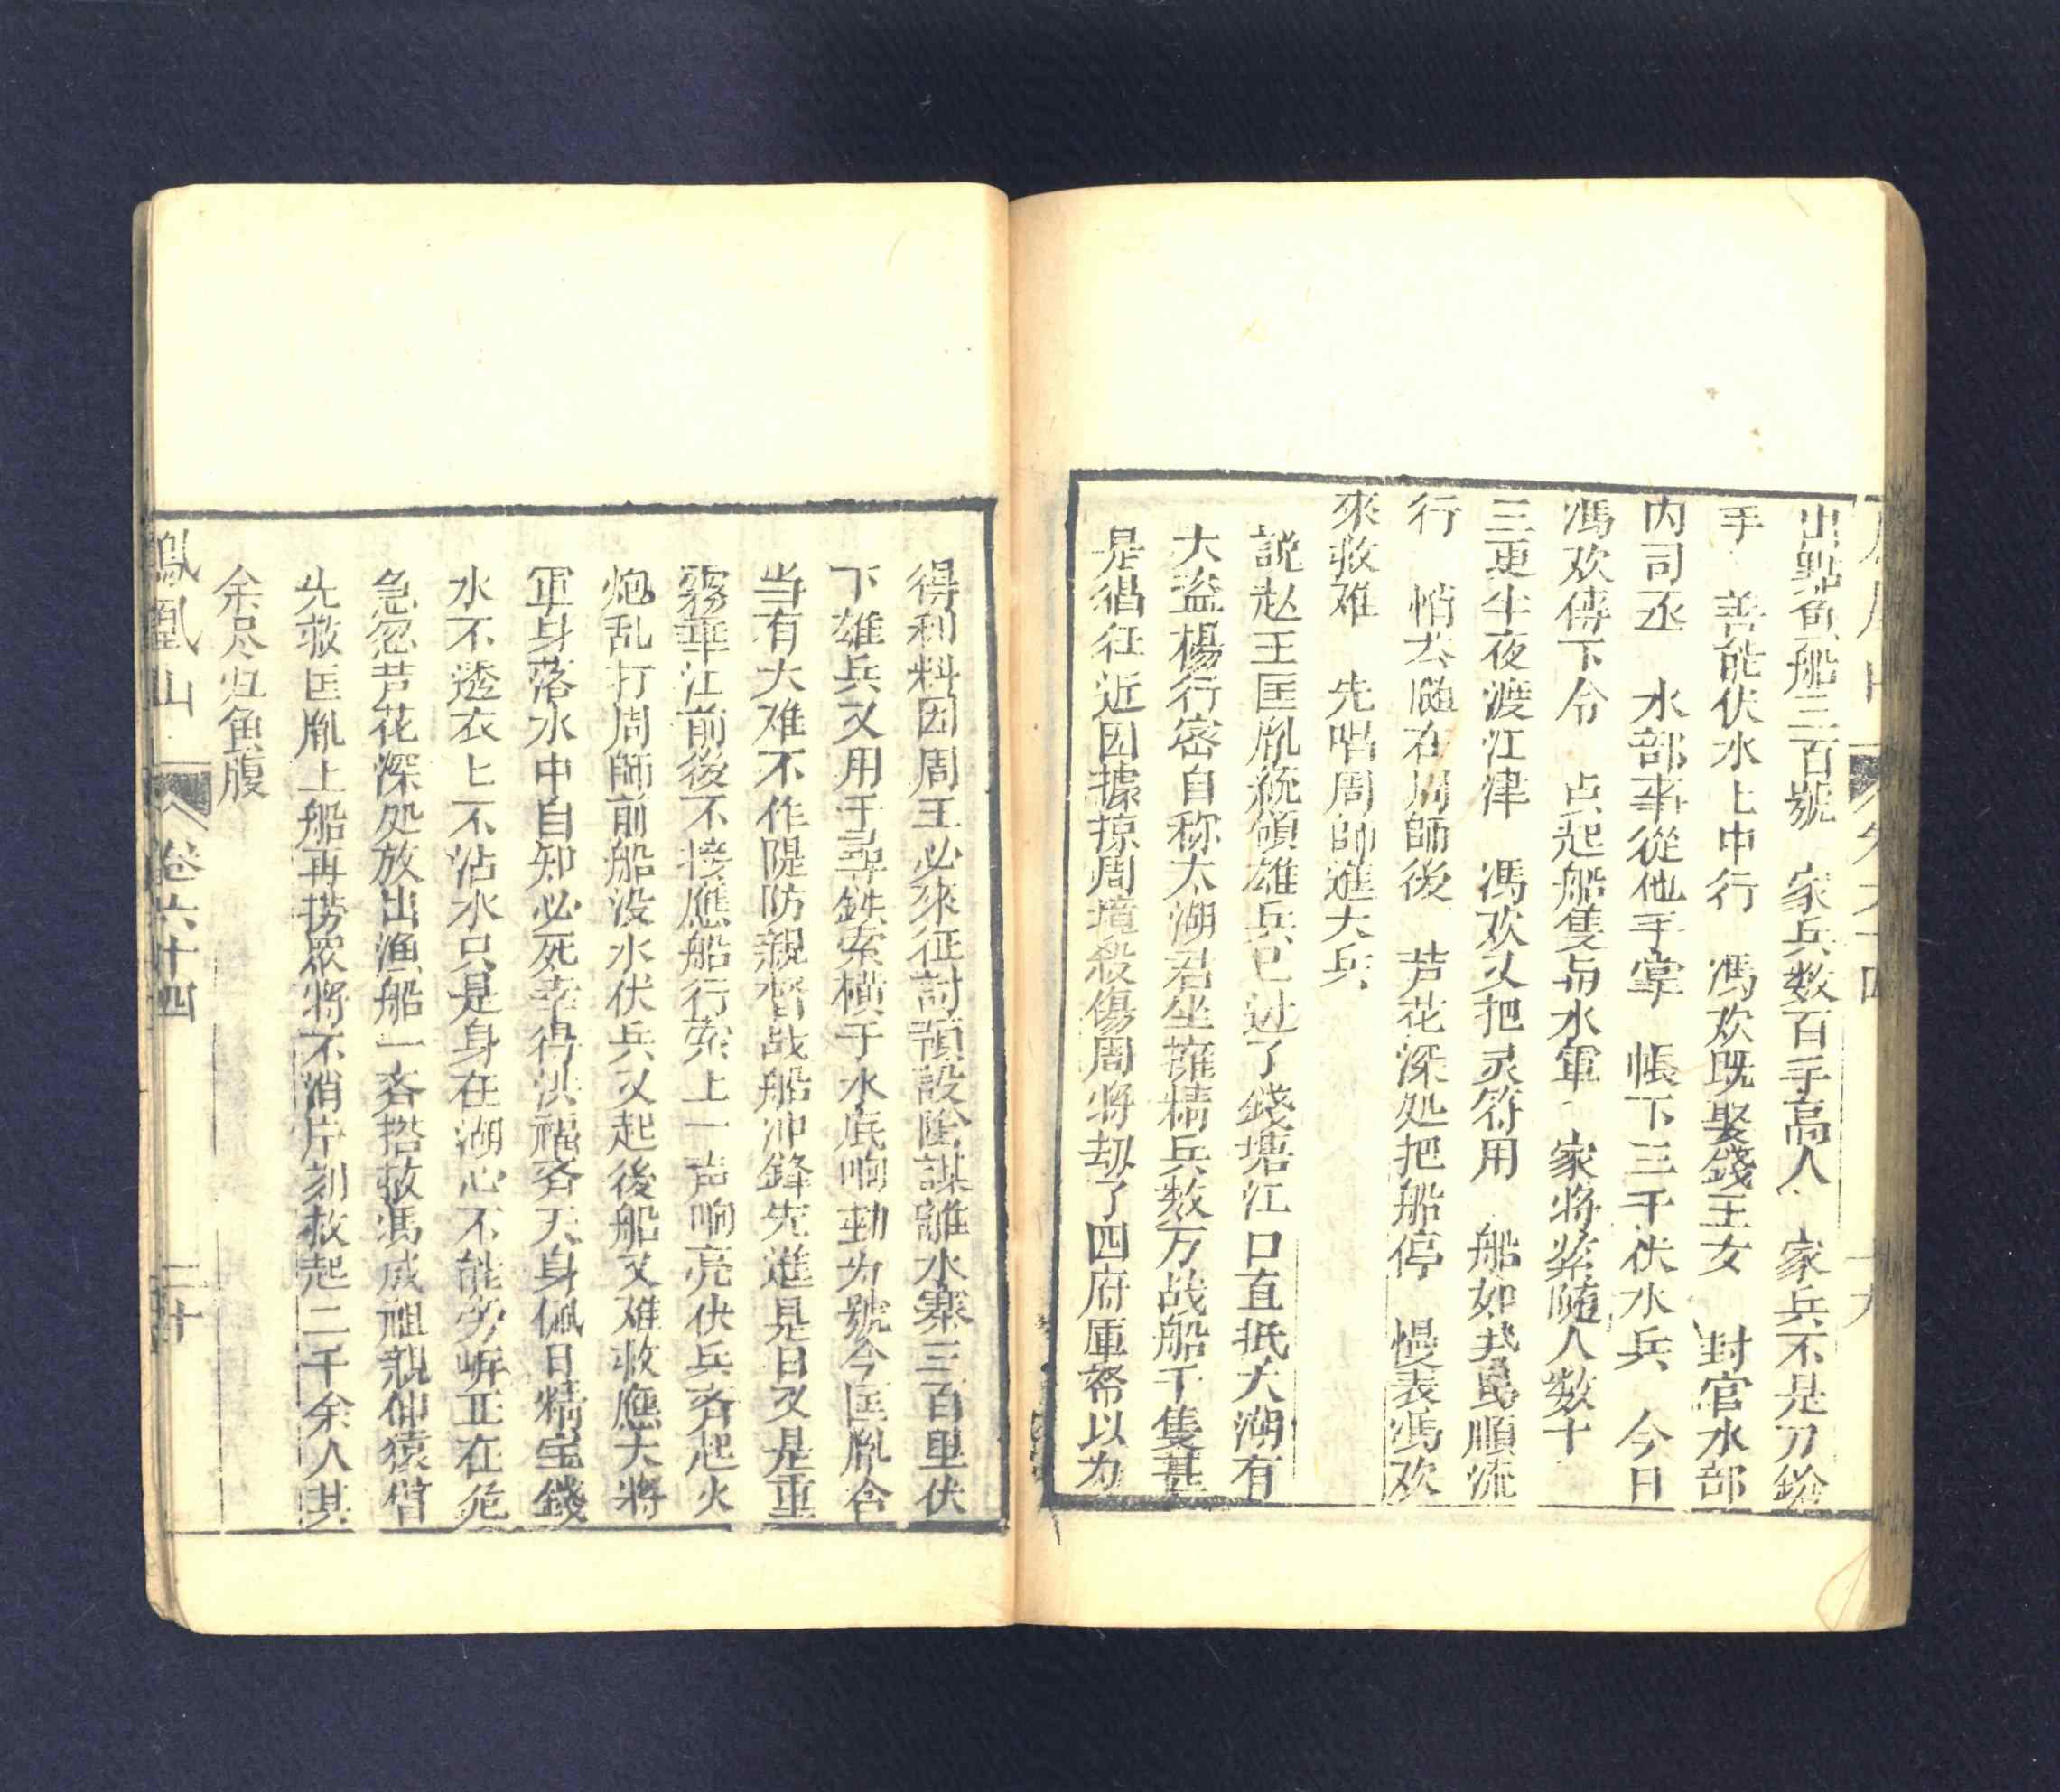 出點魚船三百號　家兵数百手高人　家兵不是刀鎗
手　善能伏水上中行　馮欢既娶錢王女　封官水部
内司丞　水部事從他手掌　帳下三千伏水兵　今日
馮欢傳下令　点起船隻与水軍　家將紧随人数十
三更半夜渡江津　馮欢又把灵符用　船如箭順流
行　悄去隨在周師後　芦花深処把船停　慢表馮欢
來救难　先唱周師進大兵
説赵王匡胤統領雄兵已过了錢塘江口直抵太湖有
大盗楊行密自称太湖君坐擁精兵数万战船千隻甚
是猖狂近因據掠周境殺傷周将刼了四府庫帑以为
得利料因周王必來征討預設陰謀離水寨三百里伏
下雄兵又用千尋鉄索橫于水底响動为號今匡胤合
当有大难不作隄防親督战船冲鋒先進是日又是重
霧華江前後不接應船行索上一声响亮伏兵齐起火
炮乱打周師前船没水伏兵又起後船又难救應大將
軍身落水中自知必死幸得洪福齐天身佩日精宝錢
水不透衣上不沾水只是身在湖心不能旁岸正在危
急忽芦花深処放出漁船一齐搭救馮咸祖親伸猿臂
先救匡胤上船再捞众将不消片刻救起二千余人其
余尽归魚腹
鳳凰山
卷六十四
二十